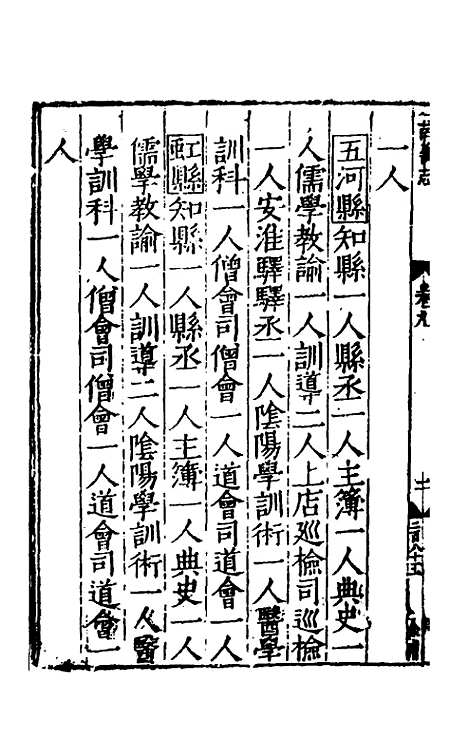 一人
五河縣知縣一人縣丞一人主簿一人典史一
人儒學教諭一人訓導二人上店巡檢司巡檢
一人安淮驛驛丞一人陰陽學訓術一人醫學
訓科一人僧會司僧會一人道會司道會一人
虹縣知縣一人縣丞一人主簿一人典史一人
儒學教諭一人訓導二人陰陽學訓術一人醫
學訓科一人僧會司僧會一人道會司道會一
人
卷九